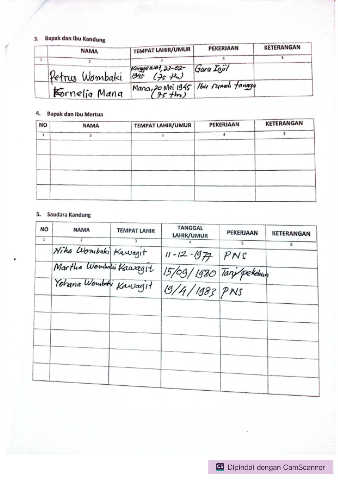 3. Bapak dan Ibu Kandung
NAMA TEMPAT LAHIR/UMUR PEKERJAAN KETERANGAN
Petrus Wombaki (75 th) Guru Injil
Kornelia Mana Mana, 20 Mei 1945 (75 thn) Ibu rumah tangga
4. Bapak dan Ibu Mertua
NO NAMA TEMPAT LAHIR/UMUR PEKERJAAN KETERANGAN
1 2 3 4 5
5. Saudara Kandung
NO NAMA TEMPAT LAHIR TANGGAL LAHIR/UMUR PEKERJAAN KETERANGAN
1 2 3 4 5 6
Niko Wombaki Kawagit 11-12-1977 PNS
Martha Wombaki Kawagit 15/09/1980 Tani/pekebun
Yohana Wombaki Kawagit 19/4/1983 PNS
CS Dipindai dengan CamScanner